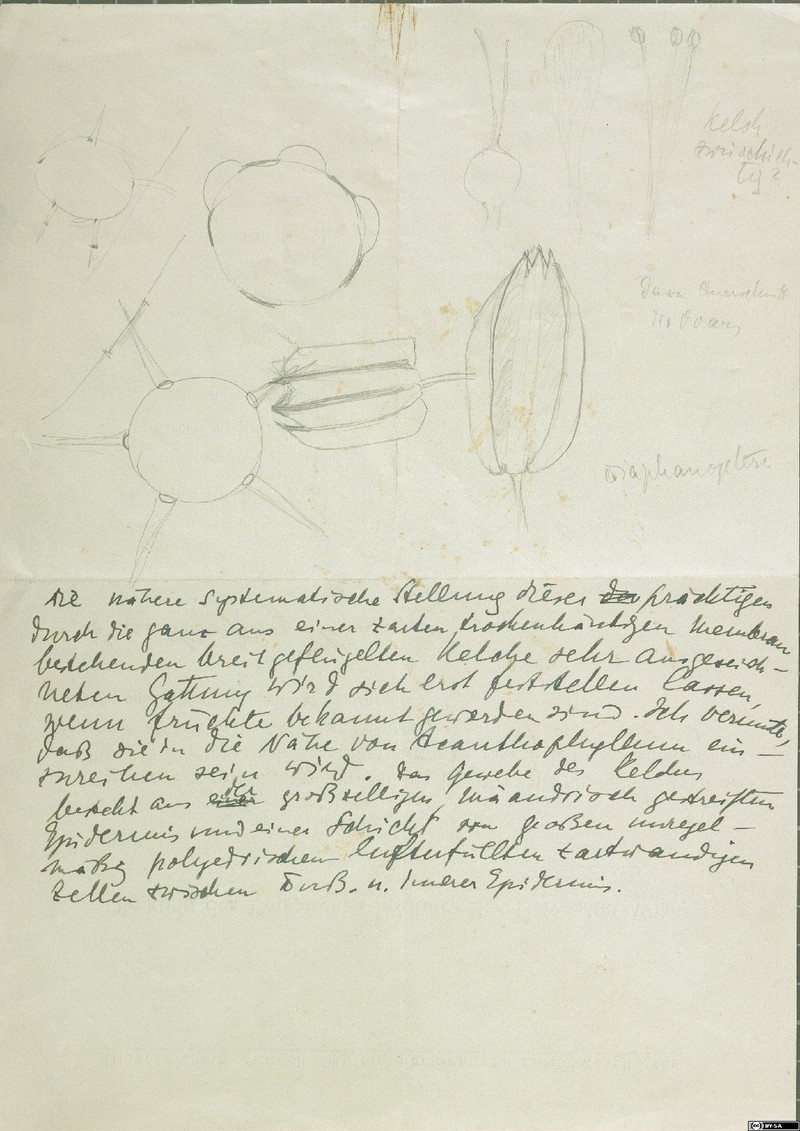 Kelch
zwischich-
tig?
Dazu Querschnitt
des Ovars
Diaphanoptera
Die nähere systematische Stellung dieser der prächtigen
durch die ganz aus einer zarten, trockenhäutigen Membran
bestehenden breit geflügelten Kelche sehr ausgezeich-
neten Gattung wird sich erst feststellen lassen,
wenn Früchte bekannt geworden sind. Ich vermute,
daß sie in die Nähe von Acanthophyllum ein-
zureihen sein wird. Das Gewebe des Kelches
besteht aus einer der großzelligen, mäandrisch gestreiften
Epidermis und einer Schicht von großen unregel-
mäßig polyedrischen lufterfüllten zartwandigen
Zellen zwischen äuß. u. innerer Epidermis.
BY-SA